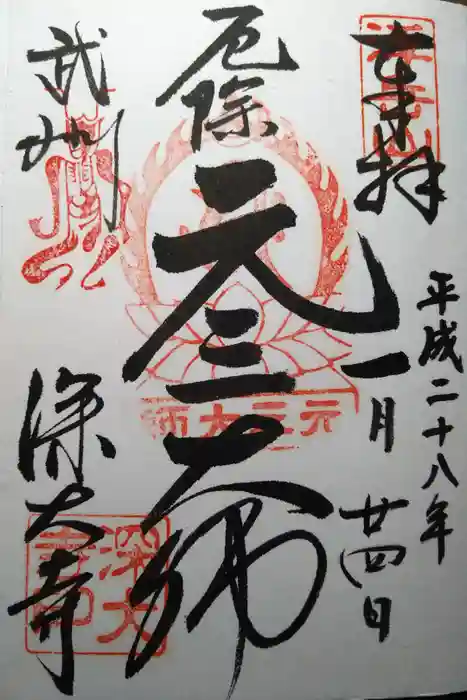 奉拝
平成二十八年
一月廿四日
厄除
元三大師
武州
深大寺
元三大師
深大寺印